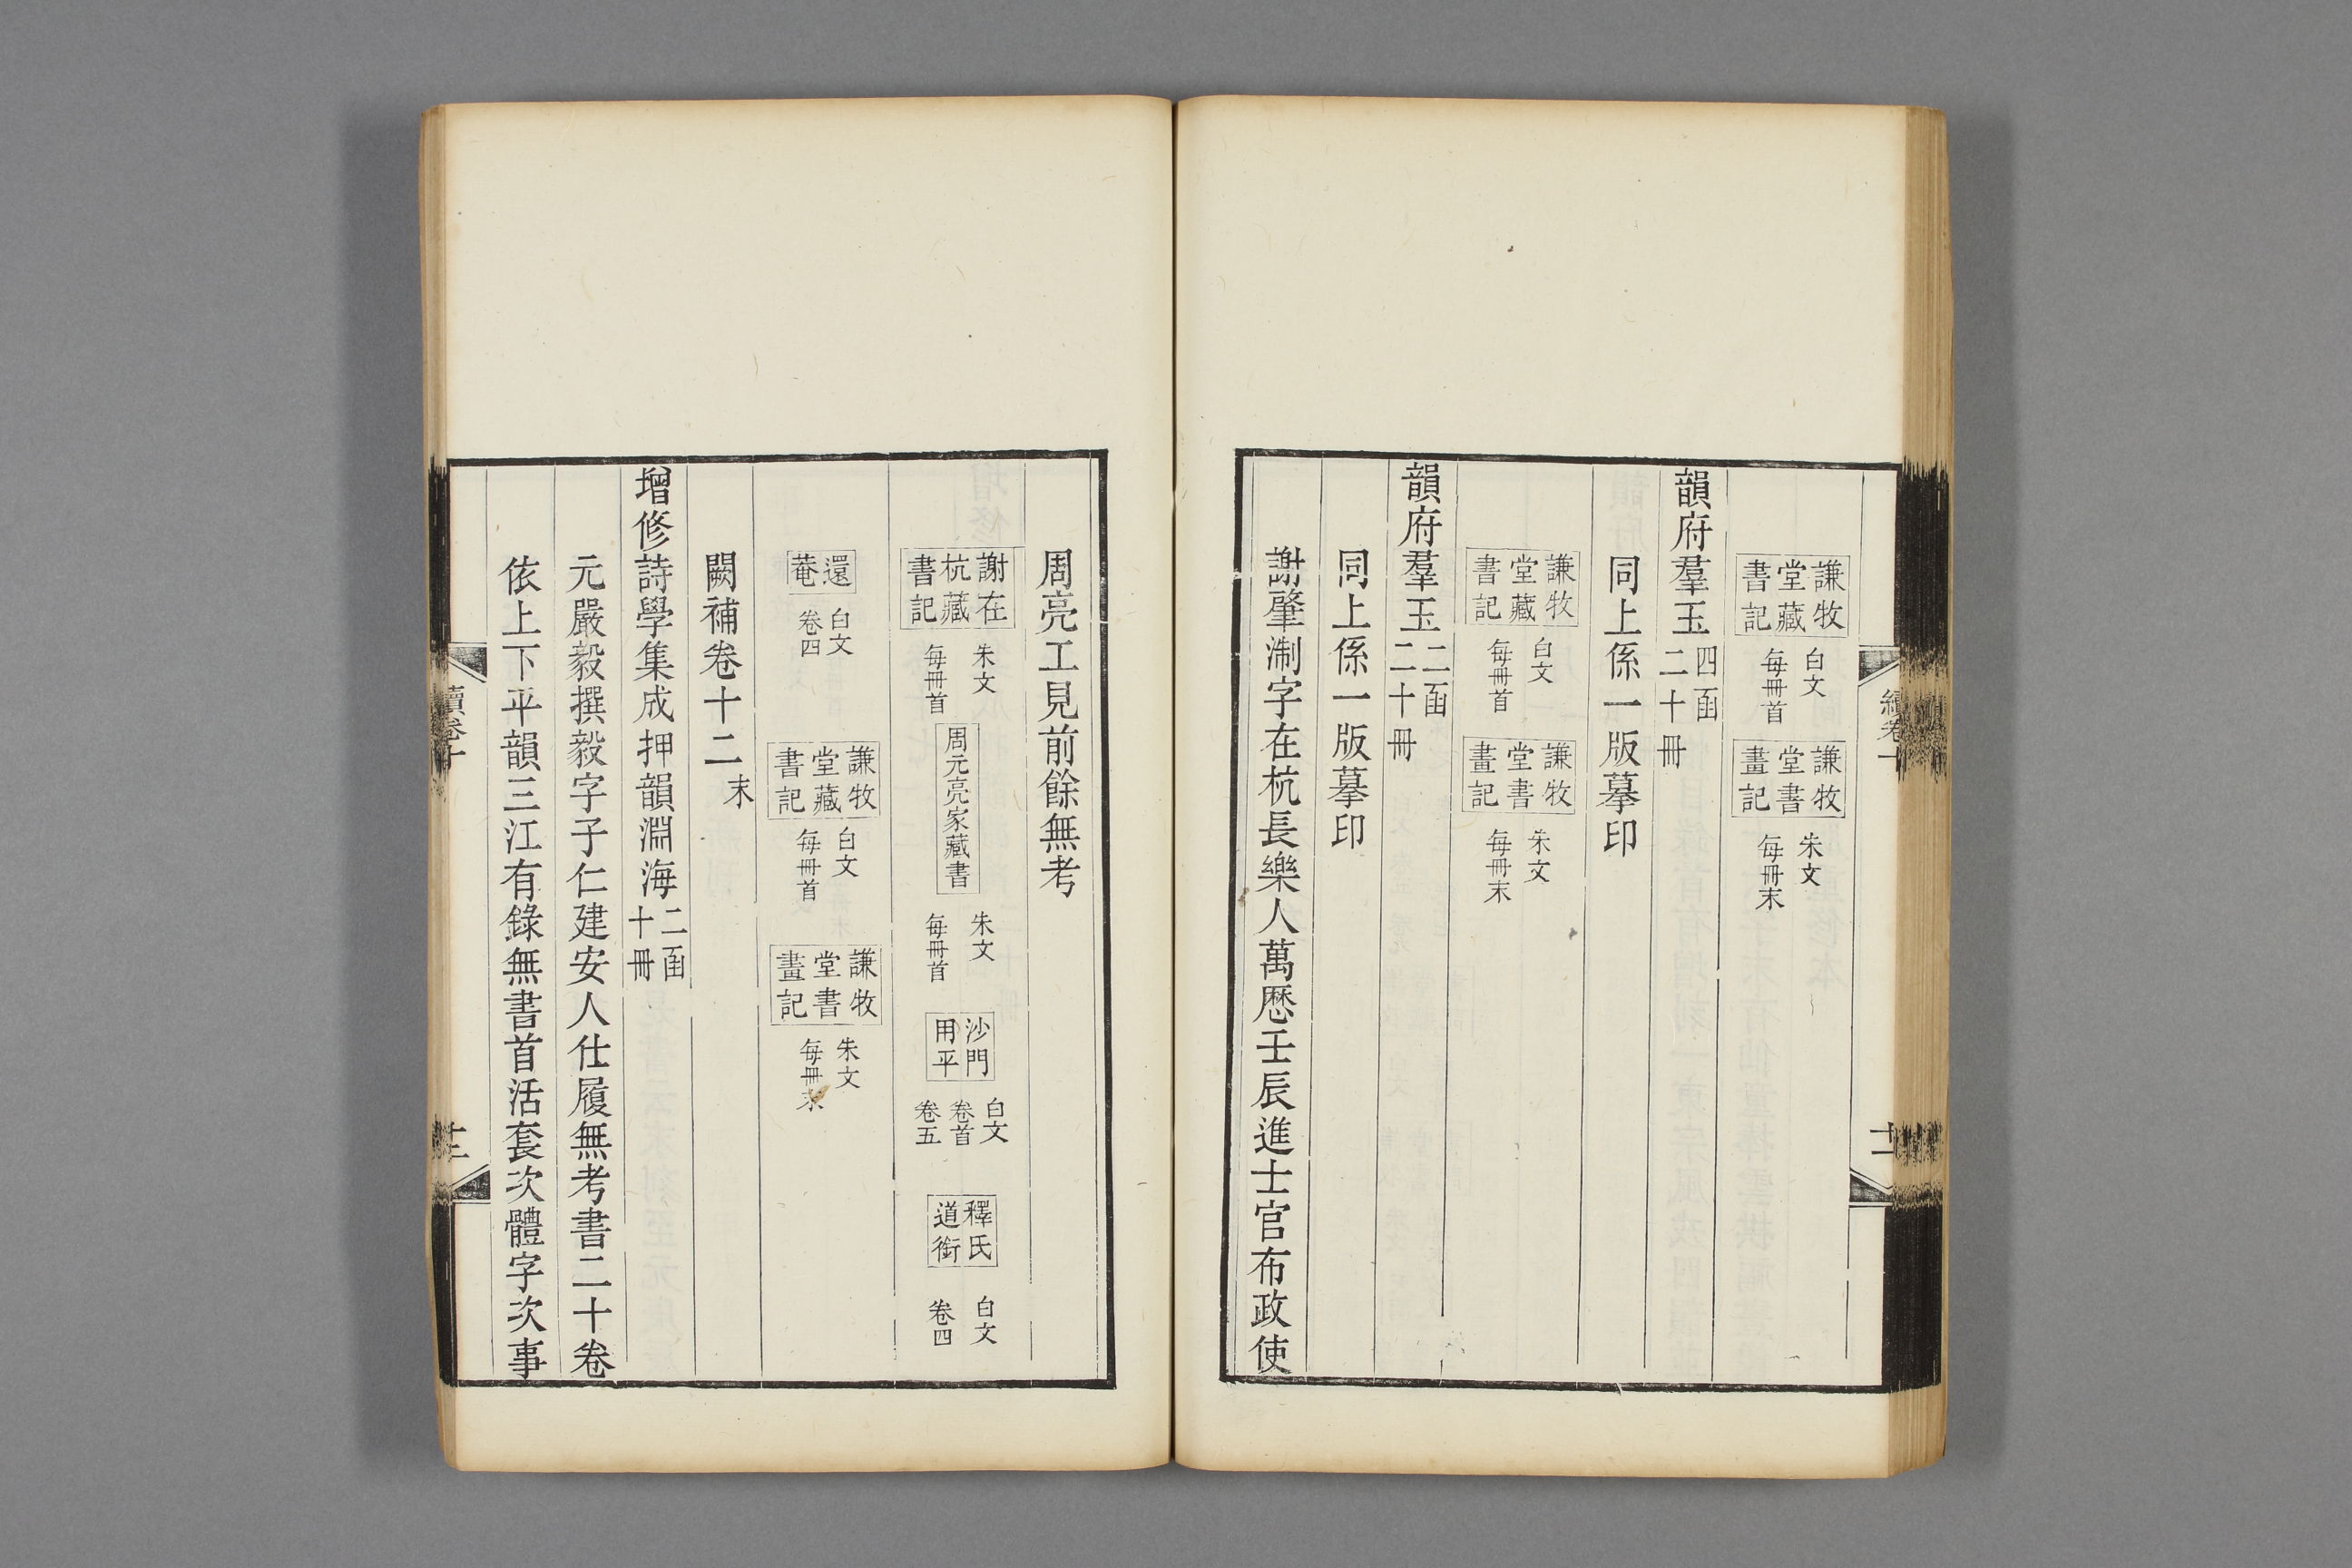 謙牧堂藏書記 白文每冊首 謙牧堂書畫記 朱文每冊末
韻府羣玉 四函二十冊
同上係一版摹印
謙牧堂藏書記 白文每冊首 謙牧堂書畫記 朱文每冊末
韻府羣玉 二函二十冊
同上係一版摹印
謝肇淛字在杭長樂人萬歷壬辰進士官布政使
周亮工見前餘無考
謝在杭藏書記 朱文每冊首 周元亮家藏書 朱文每冊首 沙門用平 白文卷首卷五 釋氏道銜 白文卷四
還菴 白文卷四 謙牧堂藏書記 白文每冊首 謙牧堂書畫記 朱文每冊末
闕補卷十二 末
增修詩學集成押韻淵海 二函十冊
元嚴毅撰毅字子仁建安人仕履無考書二十卷
依上下平韻三江有錄無書首活套次體字次事
續卷十